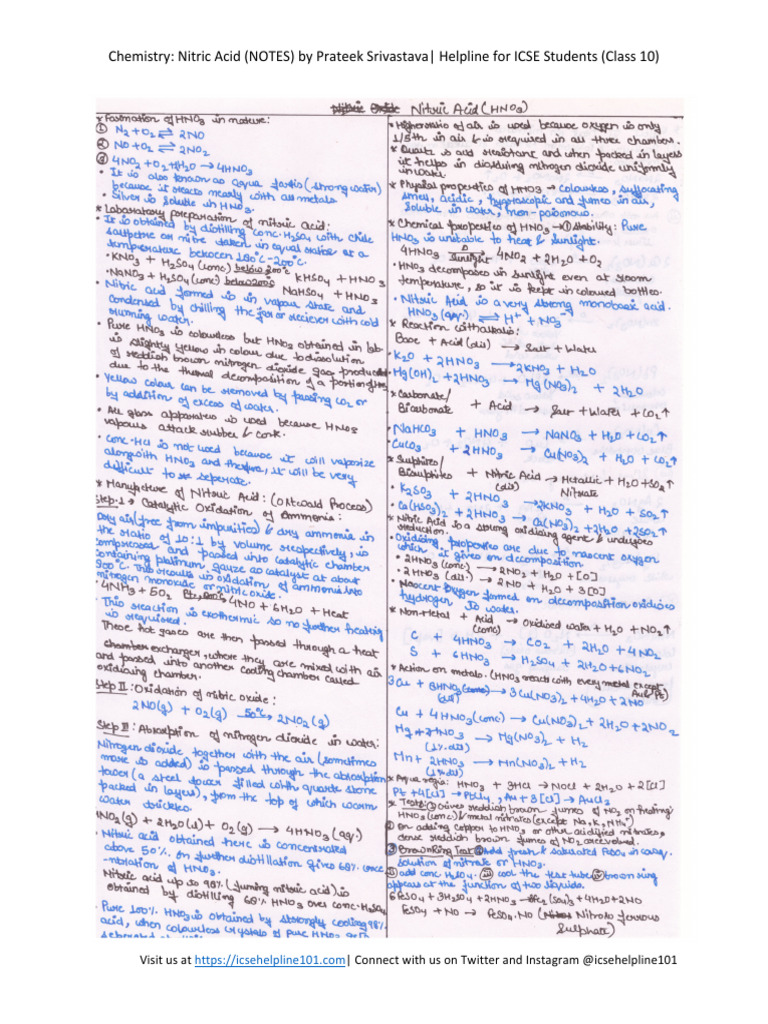 Chemistry: Nitric Acid (NOTES) by Prateek Srivastava| Helpline for ICSE Students (Class 10)
Nitric Acid (HNO3)
* Formation of HNO3 in nature:
① N2 + O2 ⇌ 2NO
② NO + O2 ⇌ 2NO2
③ 4NO2 + O2 + H2O → 4HNO3
• It is also known as aqua fortis (strong water)
because it reacts nearly with all metals.
• Silver is soluble in HNO3.
* Laboratory preparation of nitric acid:
• It is obtained by distilling conc. H2SO4 with chile
saltpetre or nitre taken in equal ratios at a
temperature between 180°C-200°C.
• KNO3 + H2SO4 (conc) below 200°C KHSO4 + HNO3
• NaNO3 + H2SO4 (conc) below 200°C NaHSO4 + HNO3
• Nitric acid formed is in vapour state and
condensed by chilling the jar or reciever with cold
running water.
• Pure HNO3 is colourless but HNO3 obtained in lab
is slightly yellow in colour due to dissolution
of reddish brown nitrogen dioxide gas produced
due to the thermal decomposition of a portion of
• Yellow colour can be removed by passing CO2 or
by addition of excess of water.
• All glass apparatus is used because HNO3
vapours attack rubber & cork.
• Conc. HCl is not used because it will vaporize
alongwith HNO3 and therefore, it will be very
difficult to seperate.
* Manufacture of Nitric Acid: (Ostwald Process)
Step-1 → Catalytic Oxidation of Ammonia:
Dry air (free from impurities) & dry ammonia in
the ratio of 10:1 by volume respectively, is
compressed and passed into catalytic chamber
containing platinum gauze as catalyst at about
800°C. This results in oxidation of ammonia into
nitrogen monoxide or nitric oxide.
• 4NH3 + 5O2 Pt, 800°C 4NO + 6H2O + Heat
• This reaction is exothermic so no further heating
is required.
These hot gases are then passed through a heat
exchanger, where they are mixed with air
and passed into another cooling chamber called
oxidising chamber.
Step II: Oxidation of nitric oxide:
2NO(g) + O2(g) 50°C 2NO2(g)
Step III: Absorption of nitrogen dioxide in water:
Nitrogen dioxide together with the air (sometimes
more is added) is passed through the absorption
tower (a steel tower filled with quartz stone
packed in layers), from the top of which warm
water trickles.
4NO2(g) + 2H2O(l) + O2(g) → 4HNO3(aq.)
• Nitric acid obtained here is concentrated
above 50%. On further distillation gives 68% conce
-ntration of HNO3.
Nitric acid up to 98% (fuming nitric acid) is
obtained by distilling 68% HNO3 over conc. H2SO4
• Pure 100% HNO3 is obtained by strongly cooling 98%
acid, when colourless crystals of pure HNO3 are
* Higher ratio of air is used because oxygen is only
1/5th in air & is required in all three chambers.
* Quartz is acid resistant and when packed in layers
it helps in dissolving nitrogen dioxide uniformly
in water.
* Physical properties of HNO3 → Colourless, suffocating
smell, acidic, hygroscopic and fumes in air,
soluble in water, non-poisonous.
* Chemical properties of HNO3 → ① Stability: Pure
HNO3 is unstable to heat & sunlight.
4HNO3 Δ Sunlight 4NO2 + 2H2O + O2
• HNO3 decomposes in sunlight even at room
temperature, so it is kept in coloured bottles.
• Nitric Acid is a very strong monobasic acid.
HNO3(aq.) ⇌ H+ + NO3
* Reaction with alkalis:
Base + Acid (dil) → Salt + Water
• K2O + 2HNO3 → 2KNO3 + H2O
• Mg(OH)2 + 2HNO3 → Mg(NO3)2 + 2H2O
* Carbonate/
Bicarbonate + Acid → Salt + Water + CO2↑
• NaHCO3 + HNO3 → NaNO3 + H2O + CO2↑
• CuCO3 + 2HNO3 → Cu(NO3)2 + H2O + CO2↑
* Sulphites/
Bisulphites + Nitric Acid (dil) → Metallic Nitrate + H2O + SO2↑
• K2SO3 + 2HNO3 → 2KNO3 + H2O + SO2↑
• Ca(HSO3)2 + 2HNO3 → Ca(NO3)2 + 2H2O + 2SO2↑
* Nitric Acid is a strong oxidising agent & undergoes
reduction.
• Oxidising properties are due to nascent oxygen
which it gives on decomposition
• 2HNO3 (conc.) → 2NO2 + H2O + [O]
• 2HNO3 (dil.) → 2NO + H2O + 3[O]
• Nascent Oxygen formed on decomposition oxidises
hydrogen to water.
* Non-Metal + Acid (conc) → Oxidised + H2O + NO2↑
C + 4HNO3 → CO2 + 2H2O + 4NO2
S + 6HNO3 → H2SO4 + 2H2O + 6NO2
* Action on metals. (HNO3 reacts with every metal except Au & Pt)
3Cu + 8HNO3 (dil) → 3Cu(NO3)2 + 4H2O + 2NO
Cu + 4HNO3 (conc) → Cu(NO3)2 + 2H2O + 2NO2
Mg + 2HNO3 (1% dil) → Mg(NO3)2 + H2
Mn + 2HNO3 (1% dil) → Mn(NO3)2 + H2
* Aqua regia: HNO3 + 3HCl → NOCl + 2H2O + 2[Cl]
Pt + 4[Cl] → PtCl4, Au + 3[Cl] → AuCl3
* Tests: ① Gives reddish brown fumes of NO2 on heating
HNO3 (conc) & metal nitrates (except Na, K, NH4+)
② On adding copper to HNO3 or other acidified nitrates,
dense reddish brown fumes of NO2 are evolved.
③ Brown Ring Test: ① Add fresh & saturated FeSO4 in aq.
solution of nitrate or HNO3.
② add conc H2SO4. ③ cool the test tube ④ brown ring
appears at the junction of two liquids.
6FeSO4 + 3H2SO4 + 2HNO3 → 3Fe2(SO4)3 + 4H2O + 2NO
FeSO4 + NO → FeSO4.NO (Nitroso ferrous
Sulphate)
Visit us at https://icsehelpline101.com| Connect with us on Twitter and Instagram @icsehelpline101